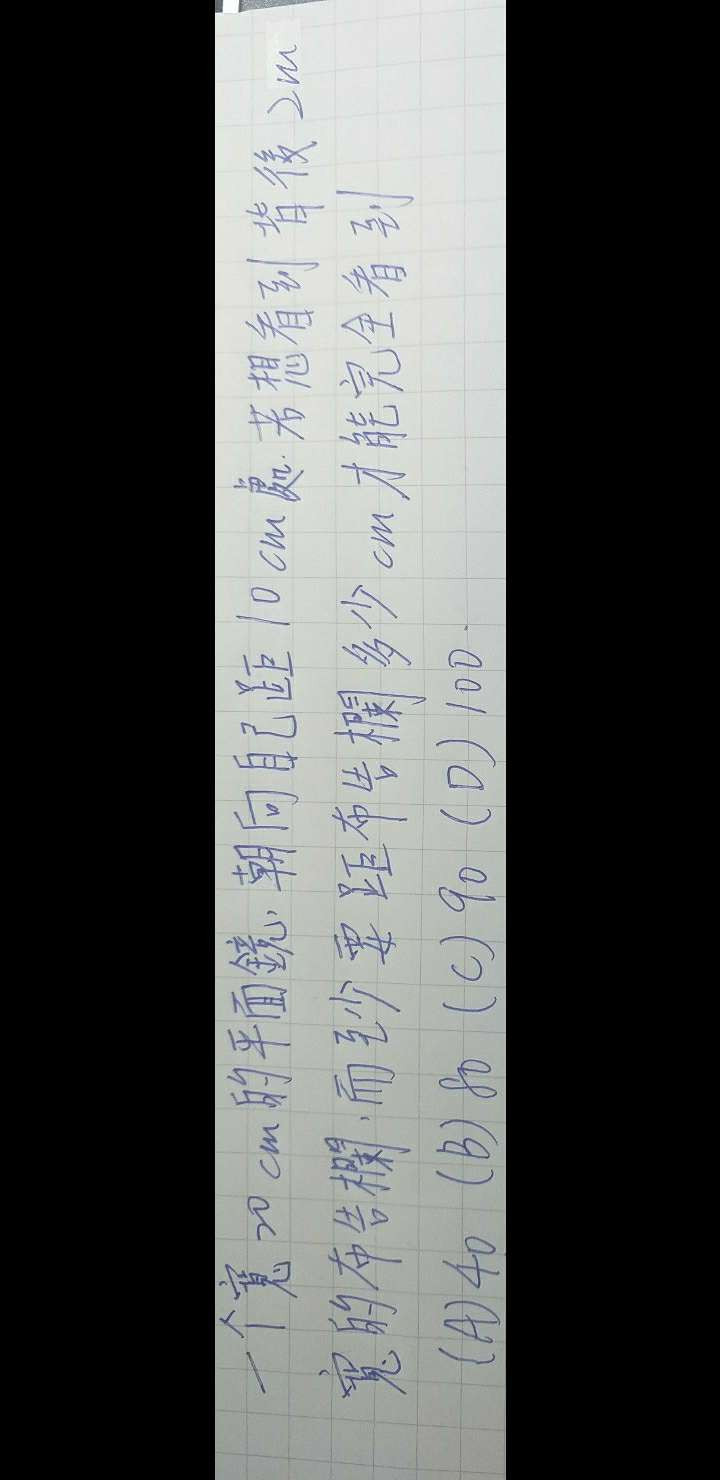 一个寬20cm的平面鏡、朝向自己距10cm處.若想看到背後2m
寬的布告欄.而至少要距布告欄多少cm才能完全看到
(A)40 (B)80 (C)90 (D)100.